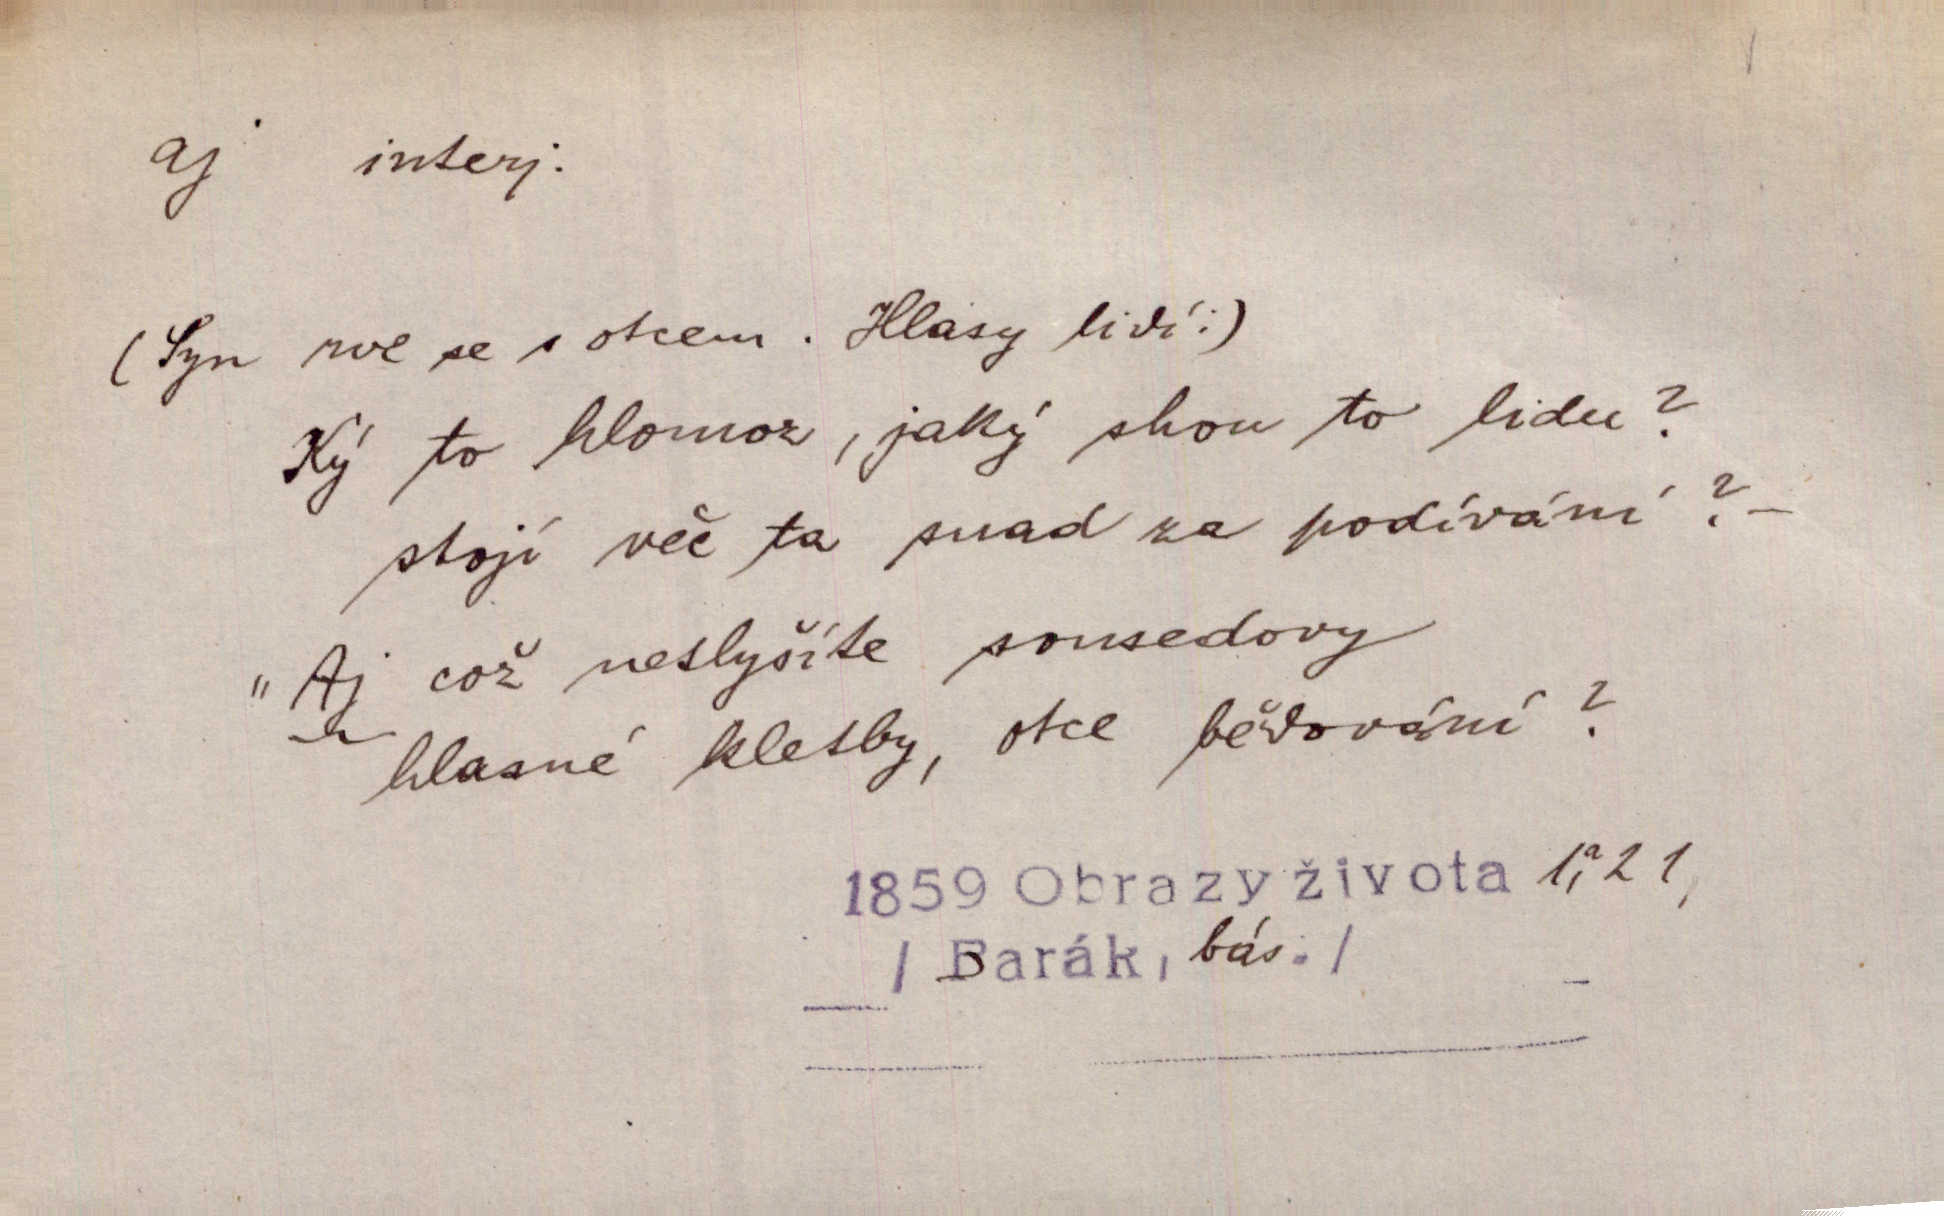 aj interj.
(Syn rve se s otcem. Hlasy lidí:)
Ký to hlomoz, jaký shon to lidu?
stojí věc ta snad za podívání? –
"Aj což neslyšíte sousedovy
hlasné kletby, otce bědování?
1859 Obrazy života 1,ª21,
/ Barák, bás. /